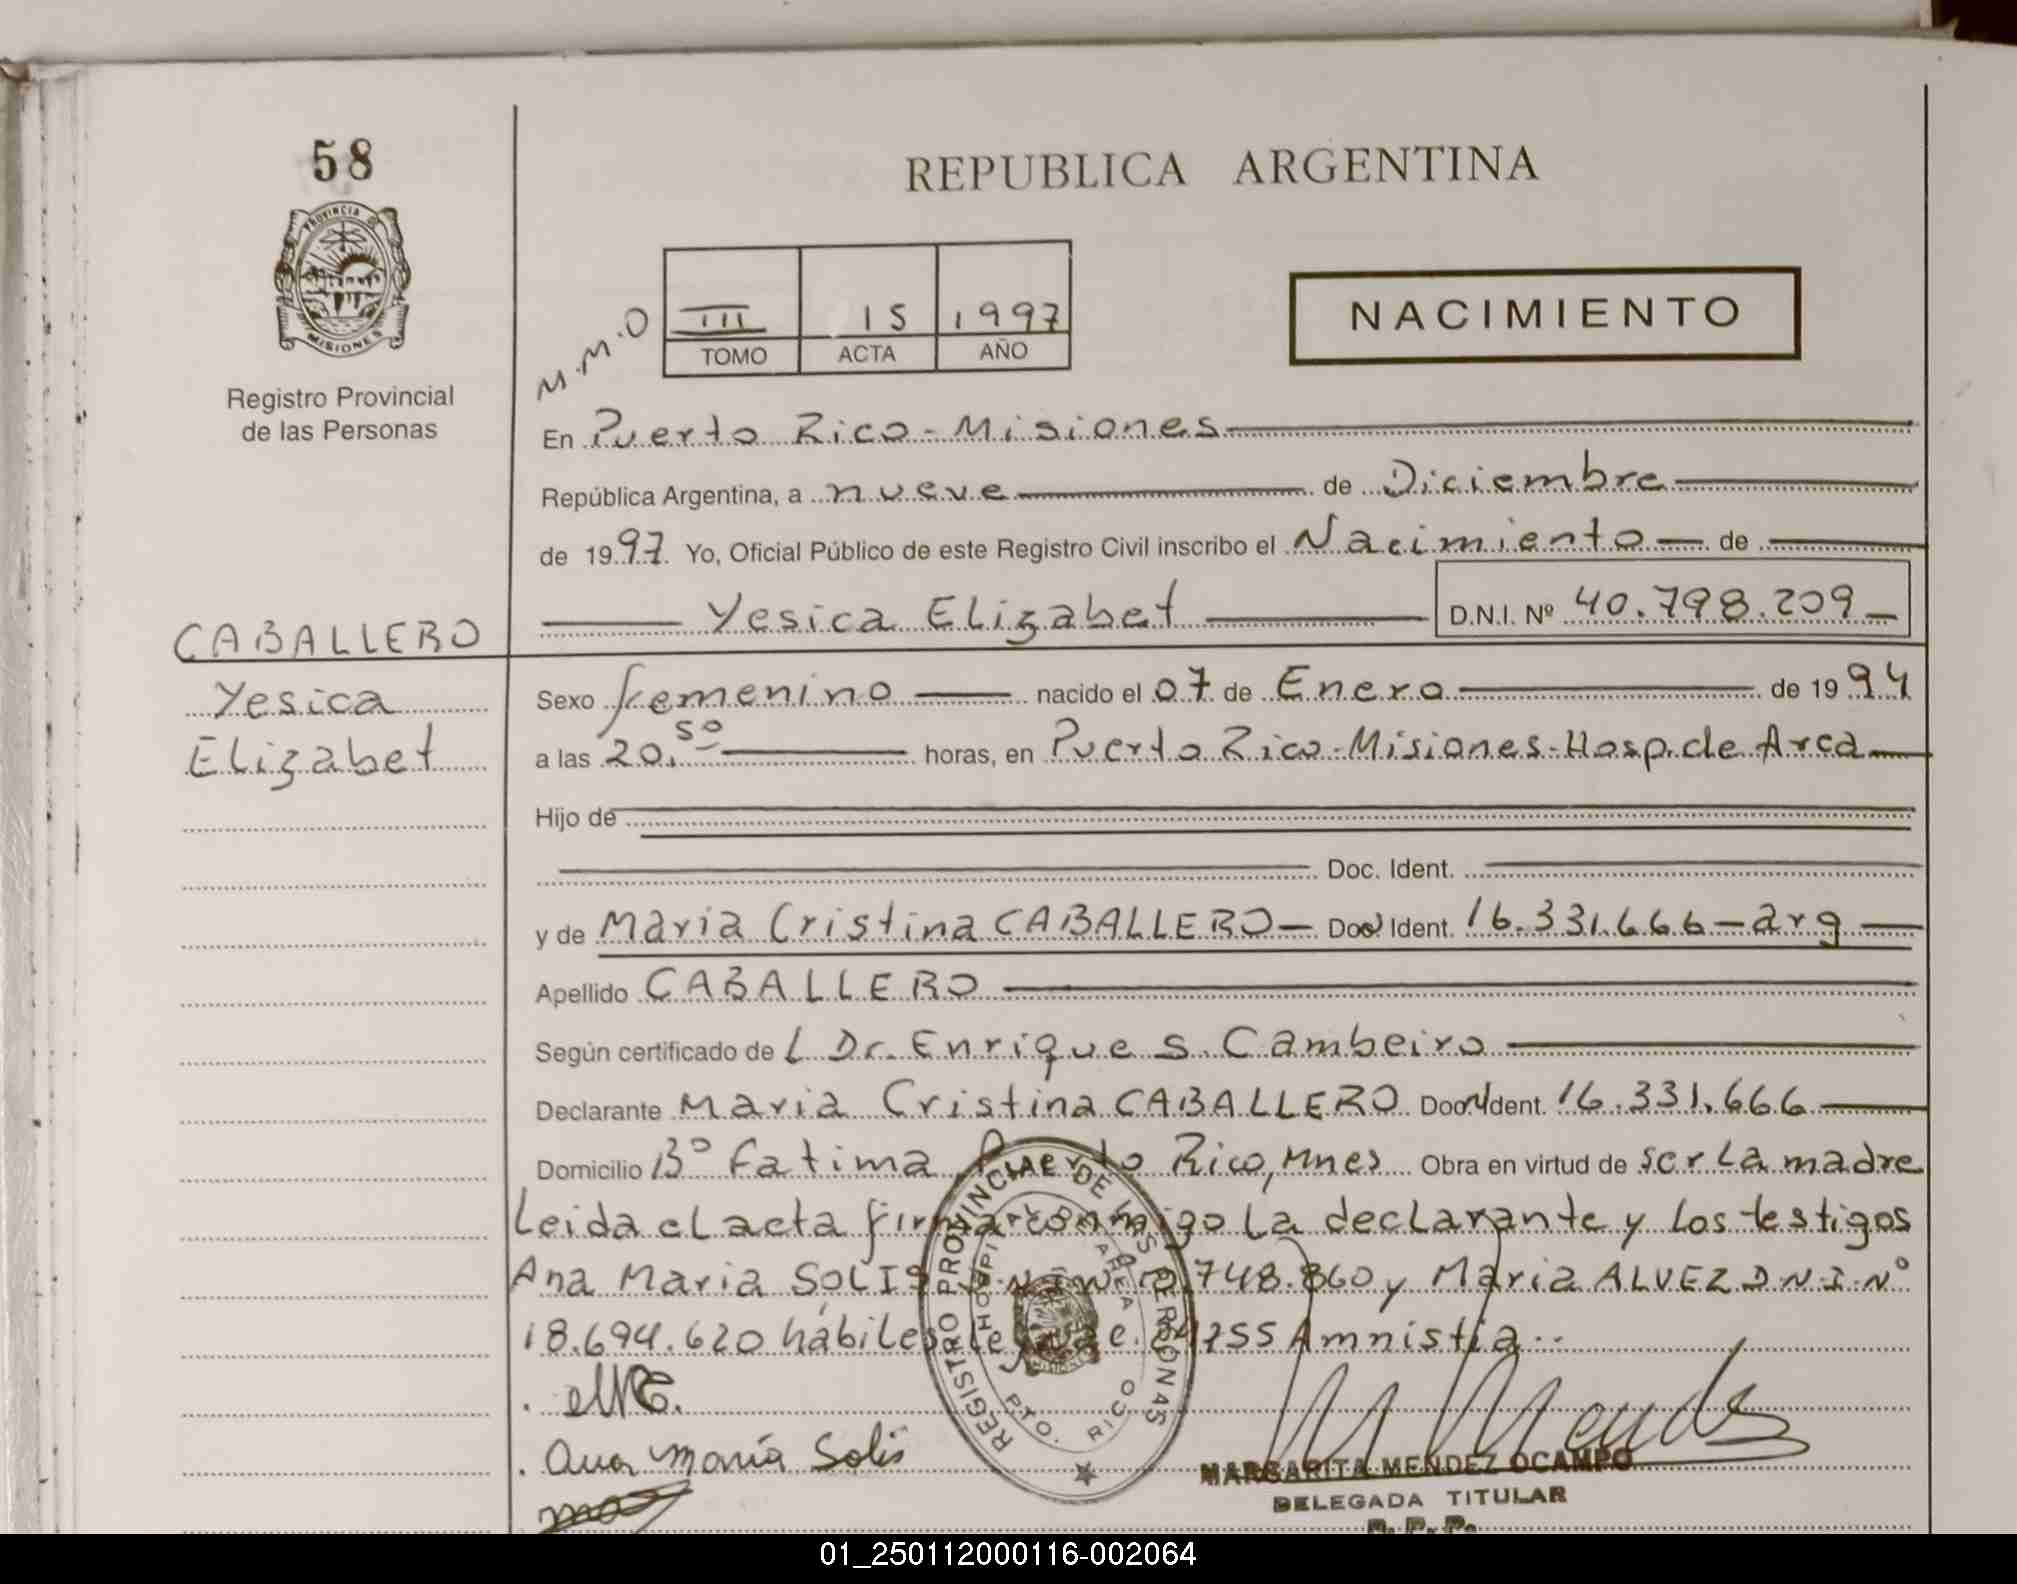 58
PROVINCIA
MISIONES
Registro Provincial
de las Personas
REPUBLICA ARGENTINA
M.M.O
III 15 1997
TOMO ACTA AÑO
NACIMIENTO
En Puerto Rico-Misiones
República Argentina, a nueve de Diciembre
de 1997 Yo, Oficial Público de este Registro Civil inscribo el Nacimiento de
Yesica Elizabet D.N.I. Nº 40.798.209
CABALLERO
Yesica
Elizabet
Sexo femenino nacido el 07 de Enero de 1994
a las 20.50 horas, en Puerto Rico-Misiones-Hosp.de Area
Hijo de
Doc. Ident.
y de Maria Cristina CABALLERO Doc Ident. 16.331.666-arg
Apellido CABALLERO
Según certificado de L Dr. Enrique S. Cambeiro
Declarante Maria Cristina CABALLERO Doc Ident. 16.331.666
Domicilio Bº Fatima, Puerto Rico, Mnes Obra en virtud de ser La madre
Leida el acta firma conmigo La declarante y Los testigos
Ana Maria SOLIS 748.860 y Maria ALVEZ D.N.I. Nº
18.694.620 hábiles Amnistia..
Ana María Solis
REGISTRO PROVINCIAL DE LAS PERSONAS
HOSPITAL DE AREA
PTO. RICO
MARGARITA MENDEZ OCAMPO
DELEGADA TITULAR
R. P. P.
01_250112000116-002064